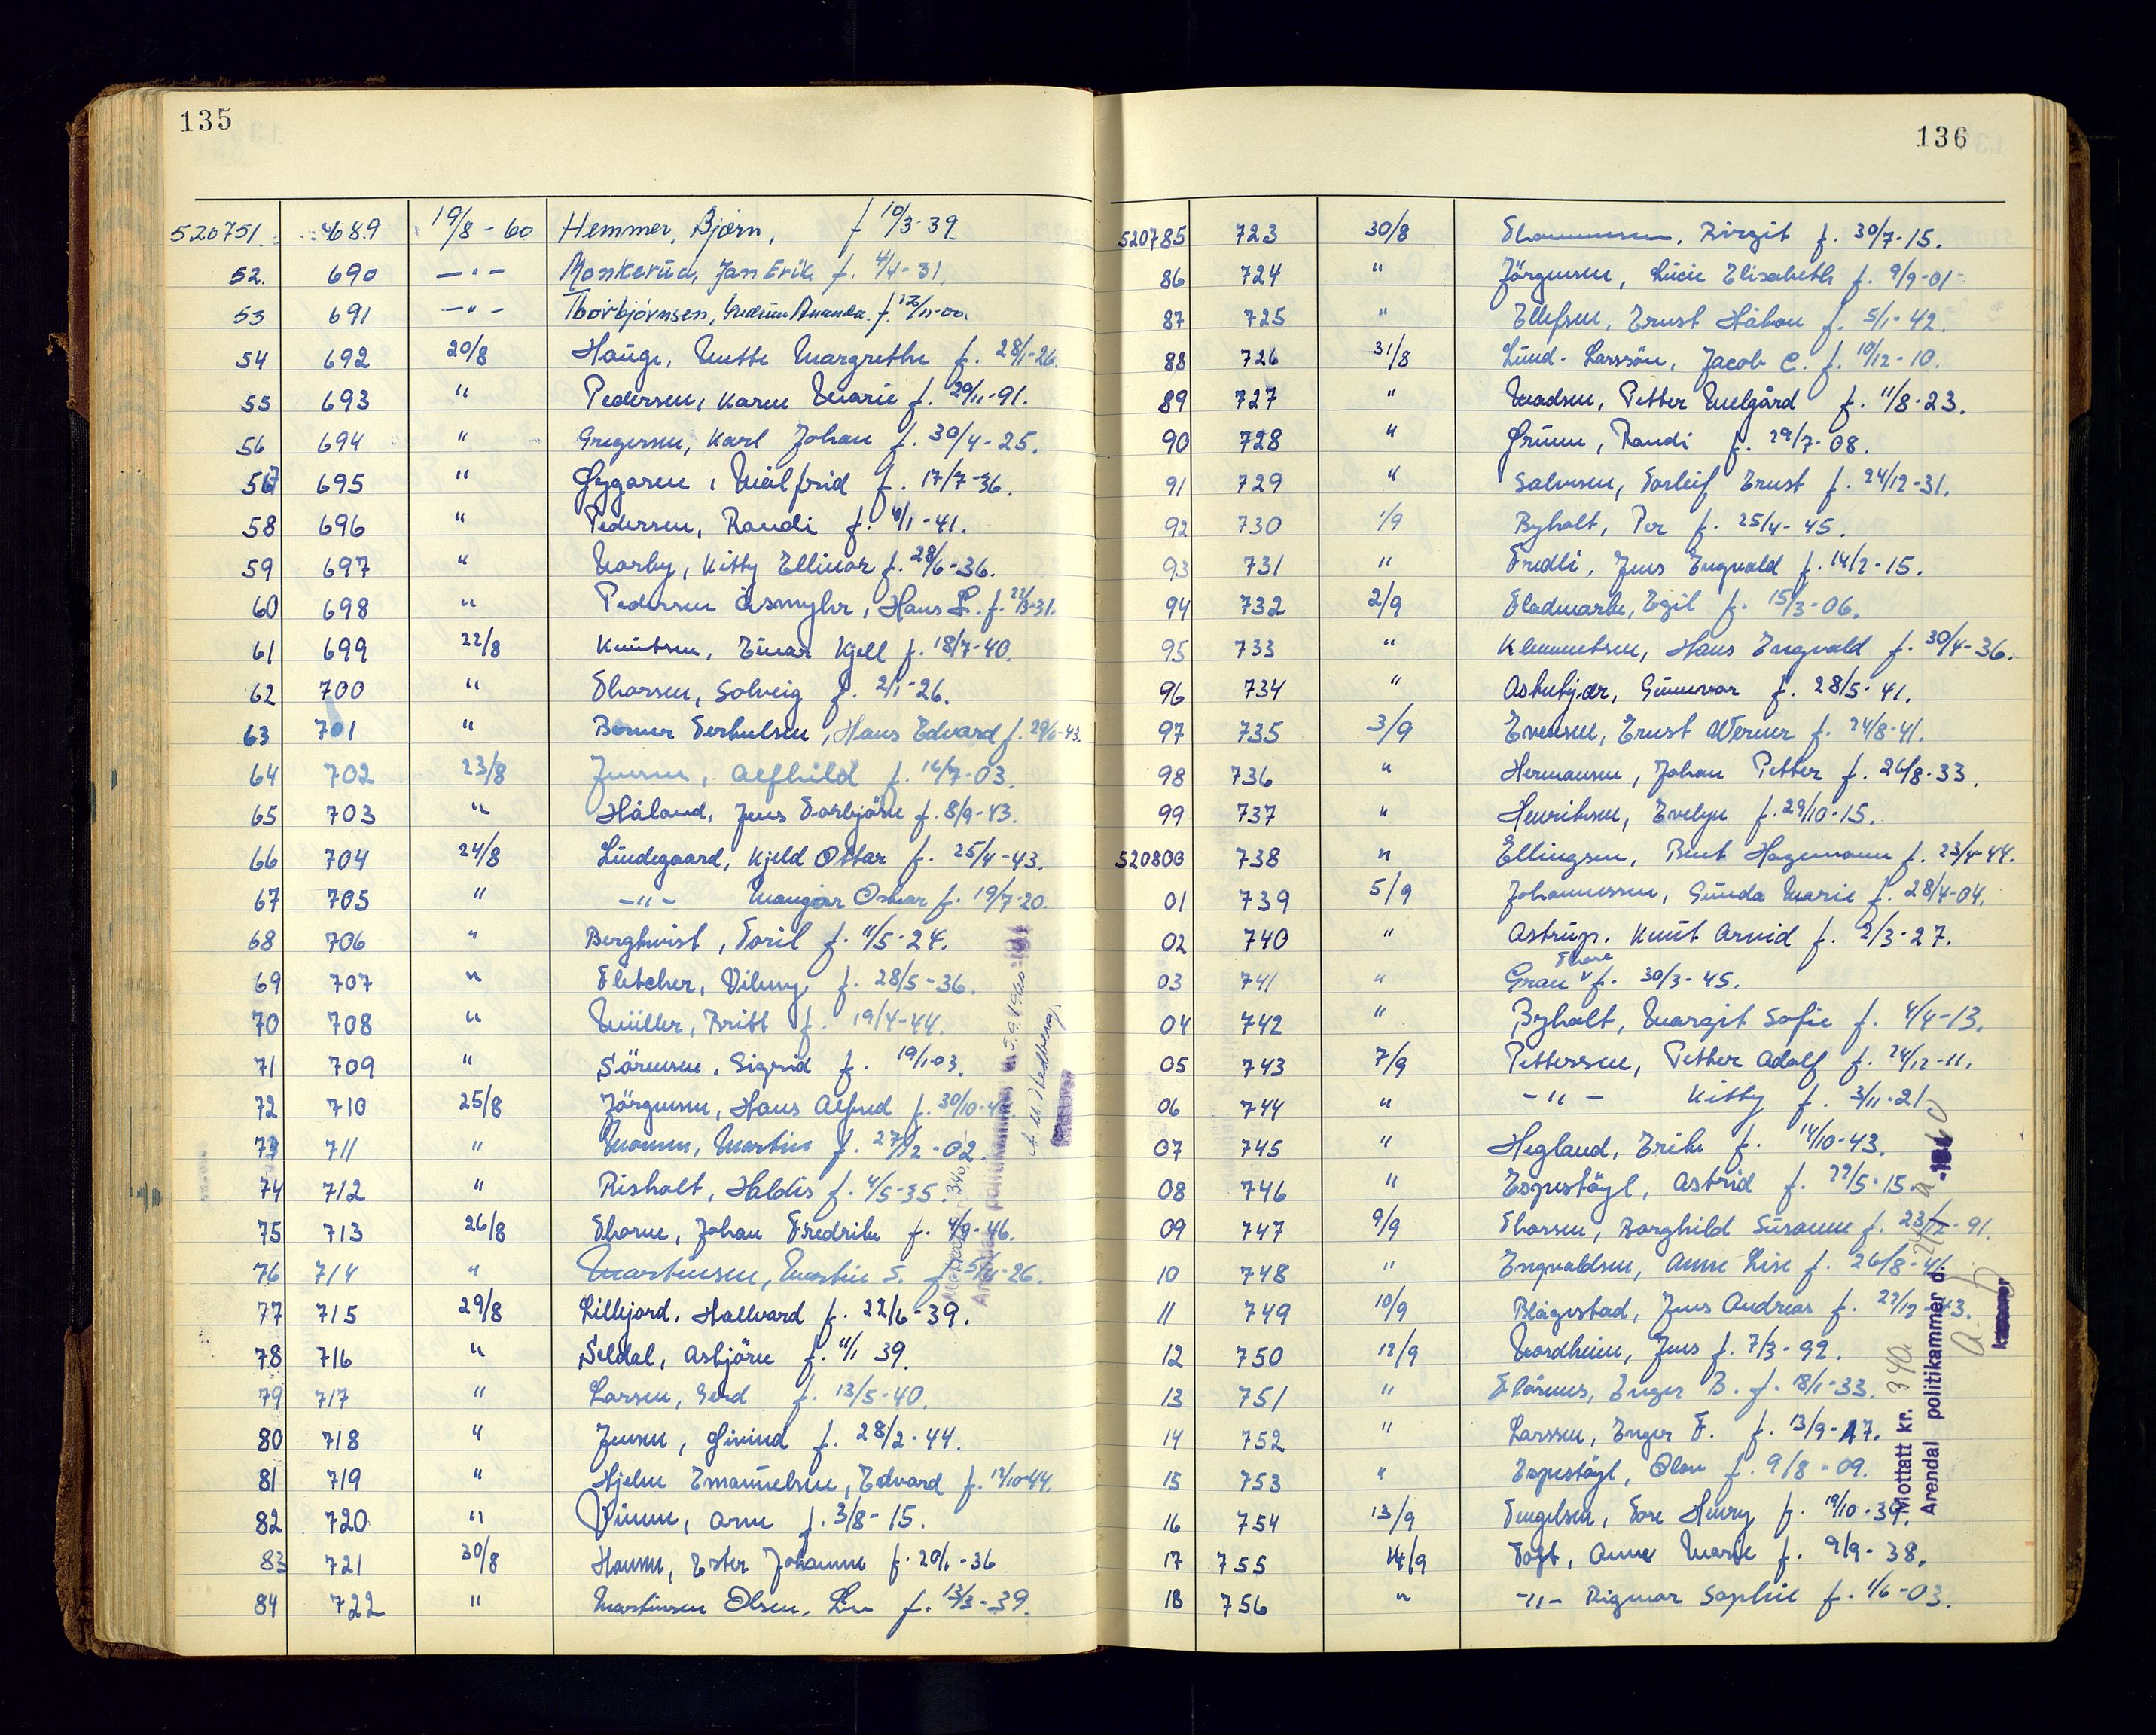 135
520751. 689 19/8-60 Hemmer, Bjørn, f 10/3-39.
52. 690 —"— Monkerud, Jan Erik f. 4/4-31.
53 691 —"— Thorbjørnsen, Gudrun Amanda. f. 12/11-00.
54 692 20/8 Hauge, Mette Margrethe f. 28/1-26.
55 693 " Pedersen, Karen Marie f. 29/11-91.
56 694 " Gregersen, Karl Johan f. 30/4-25.
57 695 " Gyggaren, Målfrid f. 17/7-36.
58 696 " Pedersen, Randi f. 4/1-41.
59 697 " Narby, Kitty Ellinor f. 28/6-36.
60 698 " Pedersen Åsmyhr, Hans L. f. 22/3-31.
61 699 22/8 Knutsen, Einar Kjell f. 18/7-40.
62 700 " Thorsen, Solveig f. 2/1-26.
63 701 " Terkelsen, Hans Edvard f. 29/6-43.
64 702 23/8 Jensen, Alfhild f. 16/7-03.
65 703 " Håland, Jens Torbjörn f. 8/9-43.
66 704 24/8 Lindegaard, Kjeld Ottar f. 25/4-43.
67 705 " —"— Mangor Oskar f. 19/7-20.
68 706 " Bergkvist, Toril f. 11/5-24.
69 707 " Fletcher, Vilmy f. 28/5-36.
70 708 " Müller, Britt f. 19/4-44.
71 709 " Sörensen, Sigrid f. 19/1-03.
72 710 25/8 Jörgensen, Hans Alfred f. 30/10-4
73 711 " Monsen, Martin f. 27/12-02.
74 712 " Risholt, Haldis f. 4/5-35.
75 713 26/8 Thorne, Johan Fredrik f. 4/9-46.
76 714 " Martinsen, Martin S. f. 5/11-26.
77 715 29/8 Lillejord, Hallvard f. 22/6-39.
78 716 " Seldal, Asbjörn f. 11/1 39.
79 717 " Larsen, Gerd f. 13/5-40.
80 718 " Jensen, Øivind f. 28/2-44.
81 719 " Hjelm Emanuelsen, Edvard f. 12/10-44.
82 720 " Vinne, Arne f. 3/8-15.
83 721 30/8 Hansen, Ester Johanne f. 20/1-36
84 722 " Martinsen Olsen, Liv f. 13/3-39.
136
520785 723 30/8 Thommesen, Birgit f. 30/7-15.
86 724 " Jörgensen, Lucie Elisabeth f. 9/9-01
87 725 " Ellefsen, Ernst Håkon f. 5/1-42.
88 726 31/8 Lund-Larssön, Jacob C. f. 10/12-10.
89 727 " Madsen, Petter Melgård f. 11/8-23.
90 728 " Grunn, Randi f. 29/7-08.
91 729 " Salvesen, Torleif Ernst f. 24/12-31.
92 730 1/9 Byholt, Per f. 25/4-45.
93 731 " Fredli, Jens Engvald f. 14/2-15.
94 732 2/9 Fladmark, Egil f. 15/3-06.
95 733 " Klemmetsen, Hans Engvald f. 30/4-36.
96 734 " Askebjær, Gunnvor f. 28/5-41.
97 735 3/9 Evensen, Ernst Werner f. 24/8-41.
98 736 " Hermansen, Johan Petter f. 26/8-33.
99 737 " Henriksen, Evelyn f. 29/10-15.
520800 738 " Ellingsen, Bent Hagemann f. 23/4-44.
01 739 5/9 Johannessen, Gunda Marie f. 28/4-04.
02 740 " Astrup, Knut Arvid f. 2/3-27.
Thore
03 741 " Grau v f. 30/3-45.
04 742 " Byholt, Margit Sofie f. 4/4-13.
05 743 7/9 Pettersen, Petter Adolf f. 24/12-11.
06 744 " —"— Kitty f. 3/11-21
07 745 " Hegland, Erik f. 14/10-43.
08 746 " Espestöyl, Astrid f. 22/5-15.
09 747 9/9 Thorsen, Borghild Susanne f. 23/12-91.
10 748 " Engvaldsen, Anne Lise f. 26/8-41
11 749 10/9 Blågestad, Jens Andreas f. 27/12-43.
12 750 12/9 Nordheim, Jens f. 7/3-92.
13 751 " Flörenes, Enger B. f. 18/1-33.
14 752 " Larssen, Enger F. f. 13/9-17.
15 753 " Espestöyl, Olav f. 9/8-09.
16 754 13/9 Tengelsen, Tore Henry f. 19/10-39.
17 755 14/9 Vogt, Anne Marie f. 9/9-38.
18 756 " —"— Rigmor Sophie f. 1/6-03.
Mottatt kr. 340
Arendal politikammer d.
kasserer